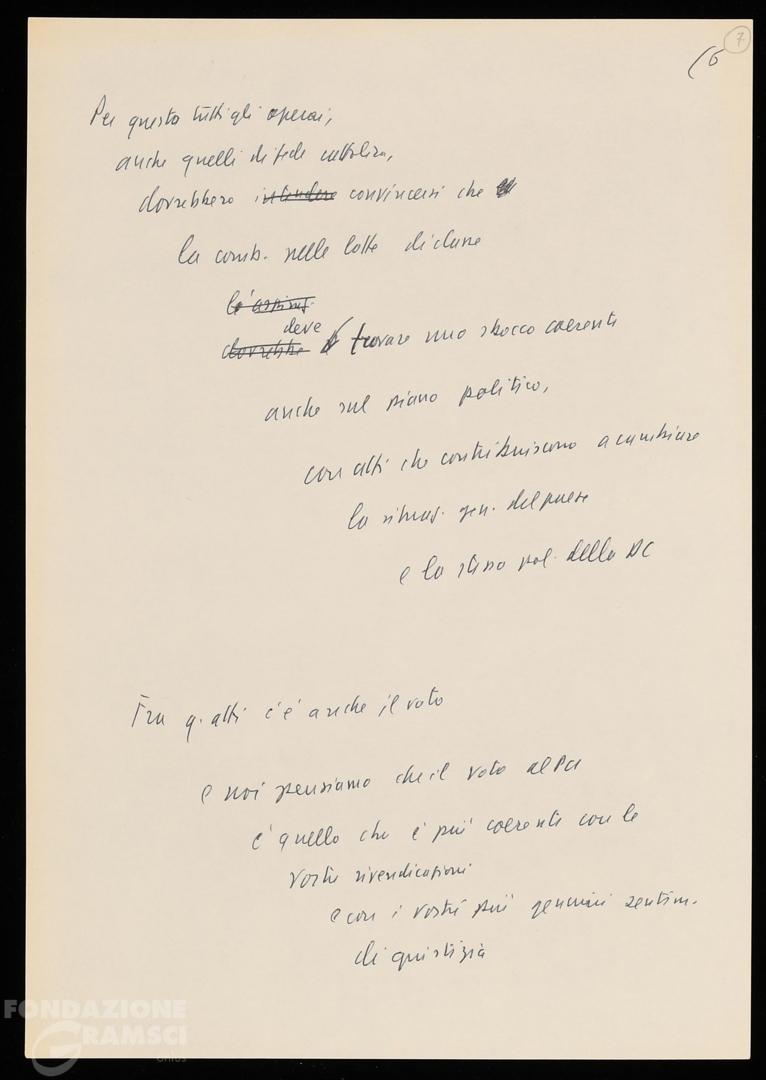 7
(6
Per questo tutti gli operai,
anche quelli di fede cattolica,
dovrebbero intendere convincersi che
la comb. nelle lotte di classe
deve
dovrebbe trovare uno sbocco coerente
anche sul piano politico,
con atti che contribuiscono a cambiare
la situaz. gen. del paese
e la stessa pol. della DC
Fra q. atti c'è anche il voto
e noi pensiamo che il voto al PCI
è quello che è più coerente con le
vostre rivendicazioni
e con i vostri più genuini sentim.
di giustizia
FONDAZIONE
GRAMSCI
onlus